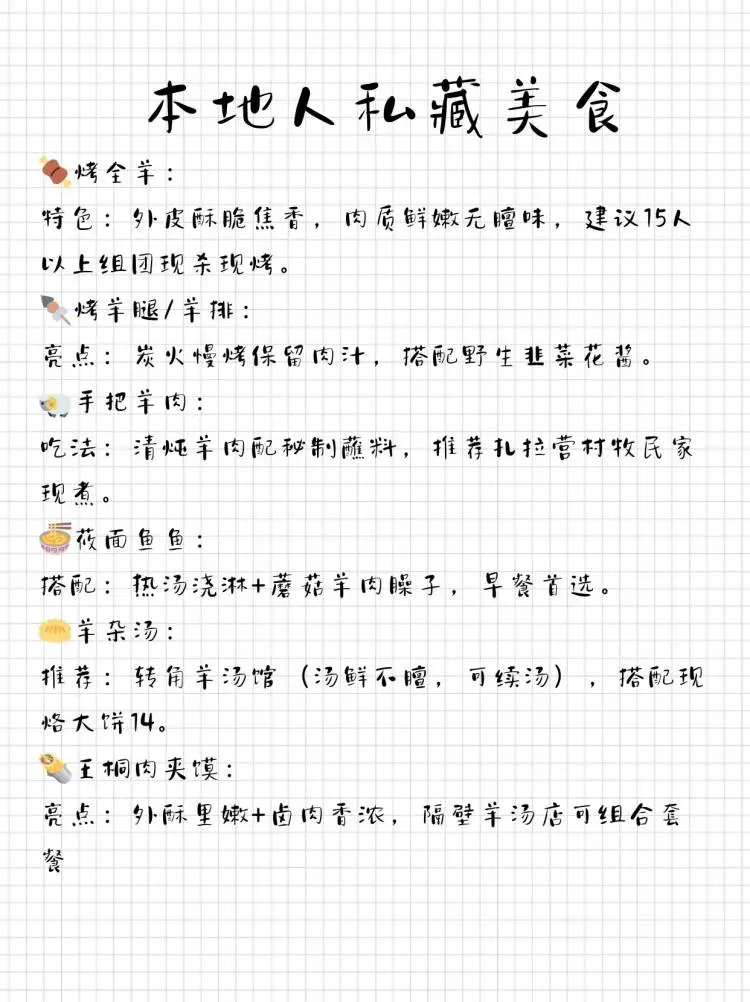 本地人私藏美食
烤全羊：
特色：外皮酥脆焦香，肉质鲜嫩无膻味，建议15人
以上组团现杀现烤。
烤羊腿/羊排：
亮点：炭火慢烤保留肉汁，搭配野生韭菜花酱。
手把羊肉：
吃法：清炖羊肉配秘制蘸料，推荐扎拉营村牧民家
现煮。
莜面鱼鱼：
搭配：热汤浇淋+蘑菇羊肉臊子，早餐首选。
羊杂汤：
推荐：转角羊汤馆（汤鲜不膻，可续汤），搭配现
烙大饼14。
王桐肉夹馍：
亮点：外酥里嫩+卤肉香浓，隔壁羊汤店可组合套
餐